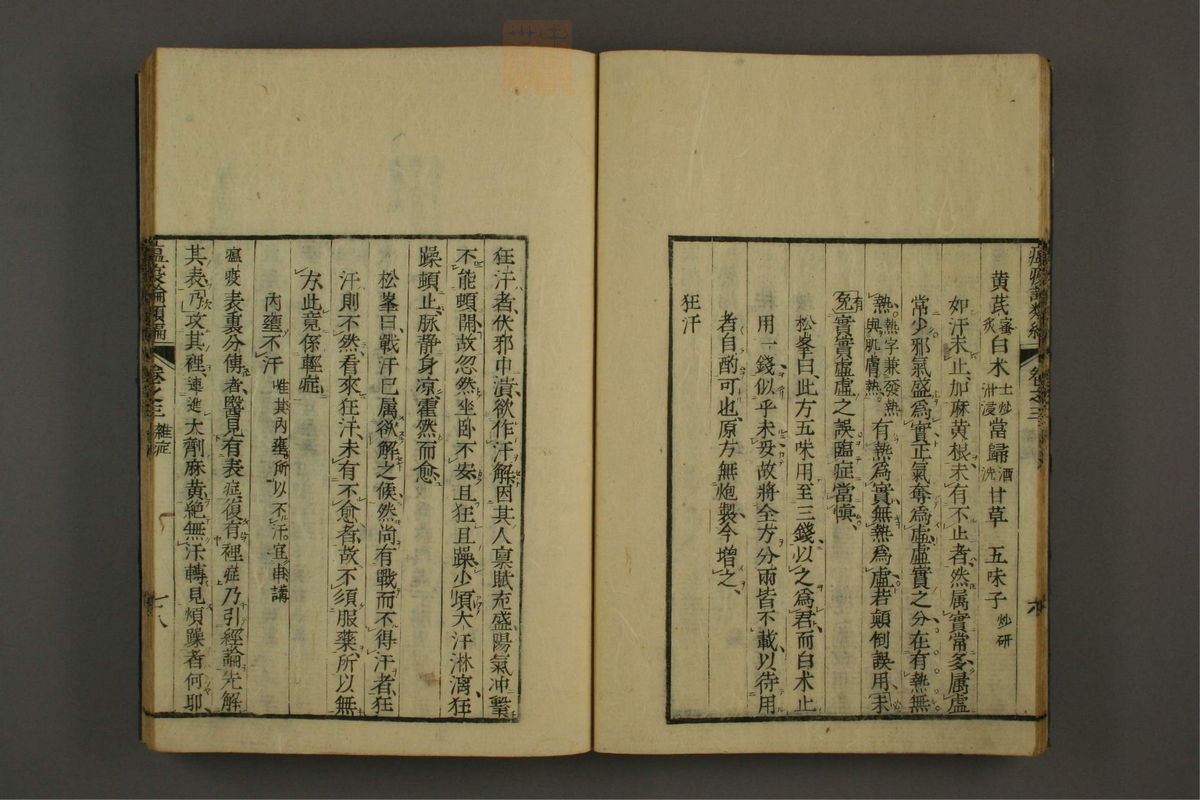 黄芪蜜炙白术土炒泔浸當歸酒洗甘草五味子炒研
如汗未止加麻黄根未有不止者然属實常多属虚
常少邪氣盛爲實正氣奪爲虚虚實之分在有熱無
熱熱字兼發熱與肌膚熱有熱爲實無熱爲虚若顛倒誤用未
有免實實虚虚之誤臨症當慎
松峯曰此方五味用至三錢以之爲君而白术止
用一錢似乎未妥故將全方分兩皆不載以待用
者自酌可也原方無炮製今增之
狂汗
狂汗者伏邪中潰欲作汗解因其人禀賦充盛陽氣冲擊
不能頓開故忽然坐卧不安且狂且躁少頃大汗淋漓狂
躁頓止脉静身凉霍然而愈
松峯曰戰汗已属欲解之候然尚有戰而不得汗者狂
汗則不然看來狂汗未有不愈者故不須服藥所以無
方此竟係輕症
内壅不汗惟其内壅所以不汗宜串講
瘟疫表裏分傳者醫見有表症復有裡症乃引經論先解
其表乃攻其裡連進大劑麻黄絶無汗轉見煩躁者何耶
瘟疫論類編
卷之三
雜症
十八